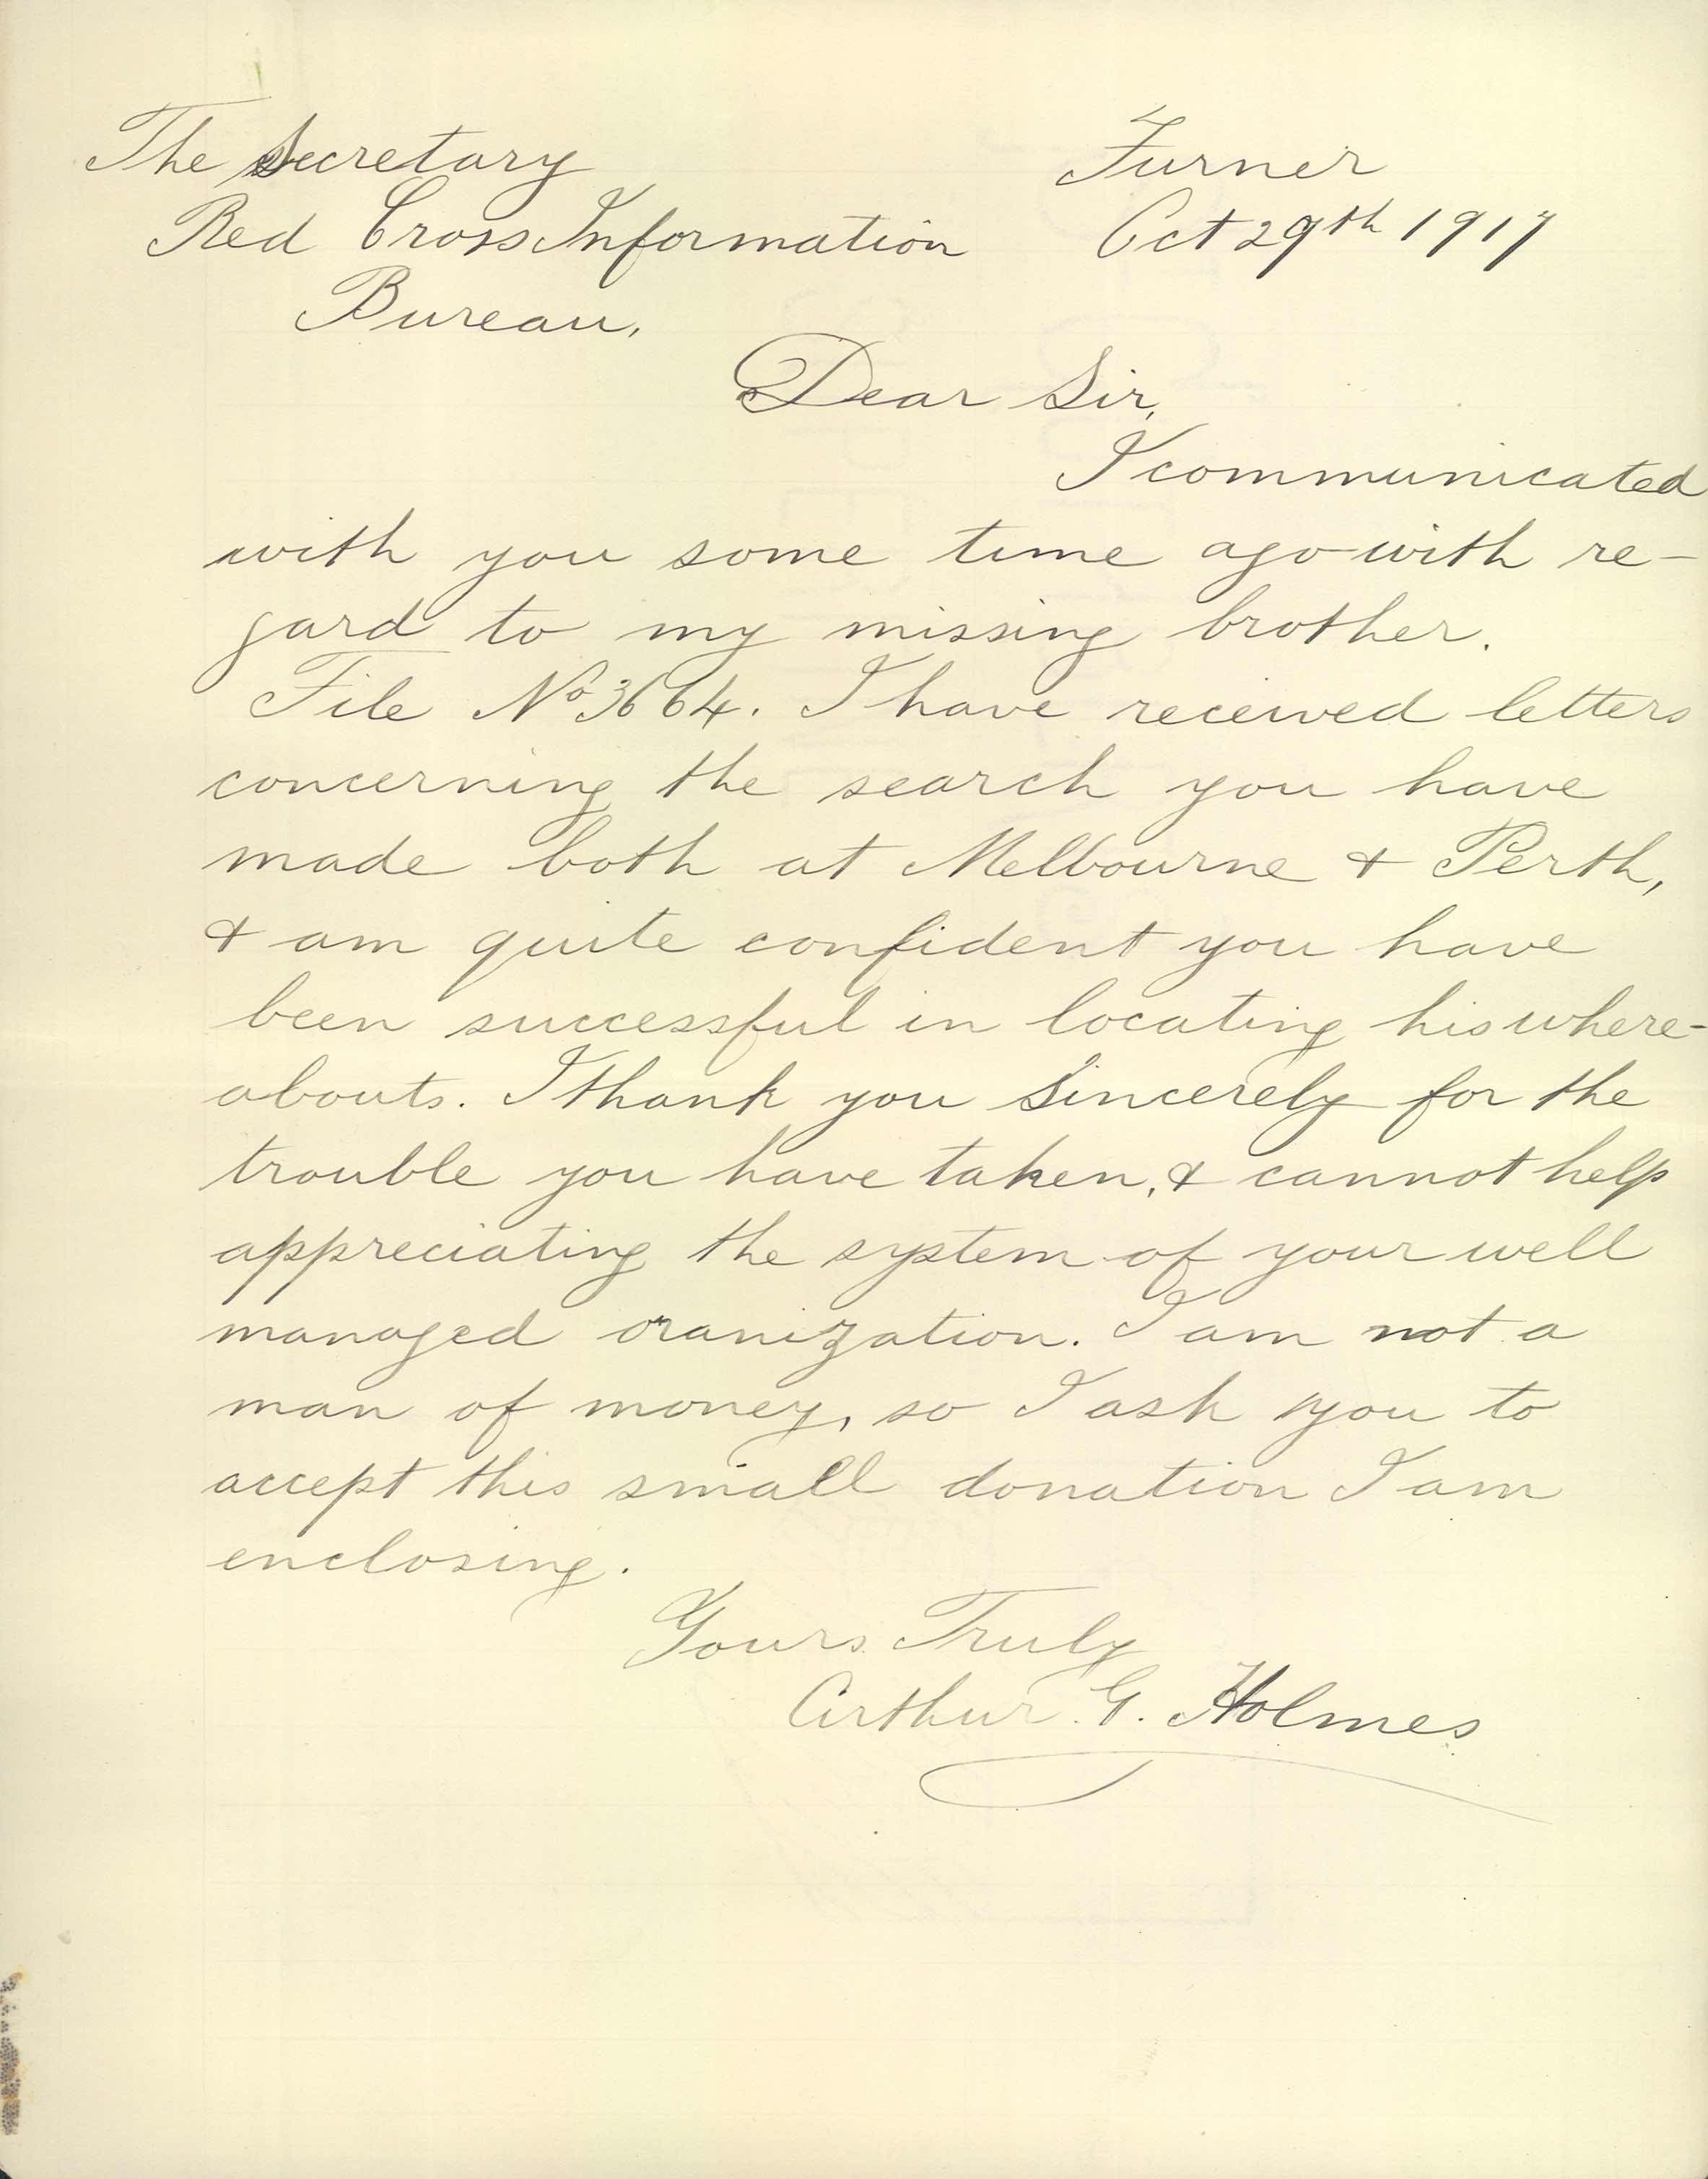 The Secretary
Furner
Red Cross Information
Oct 29th 1917
Bureau,
Dear Sir,
I communicated
with you some time ago with re-
gard to my missing brother.
File No 3664. I have received letters
concerning the search you have
made both at Melbourne & Perth,
& am quite confident you have
been successful in locating his where-
abouts. I thank you sincerely for the
trouble you have taken, & cannot help
appreciating the system of your well
managed oranization. I am not a
man of money, so I ask you to
accept this small donation I am
enclosing.
Yours Truly
Arthur G. Holmes